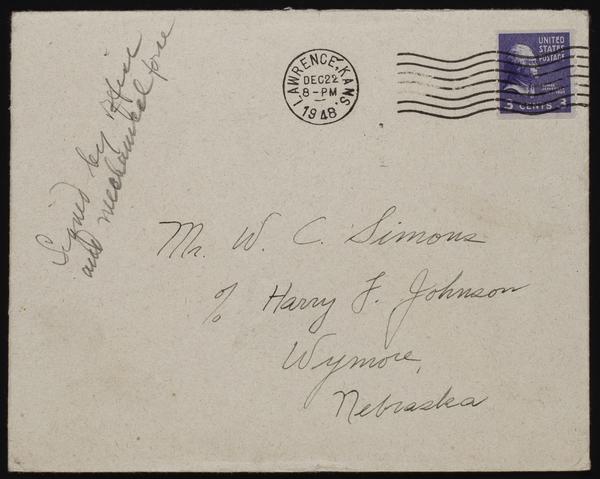 LAWRENCE, KANS.
DEC 22
8-PM
1948
UNITED
STATES
POSTAGE
3 CENTS 3
Signed by office
and mechanical
Mr. W. C. Simons
% Harry F. Johnson
Wymore,
Nebraska